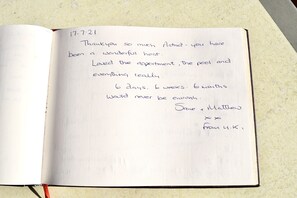 17.7.21
Thankyou so much - you have
been a wonderful host
Loved the apartment, the pool and
everything really.
6 days. 6 weeks. 6 months
would never be enough
Matthew
x x
from U.K.